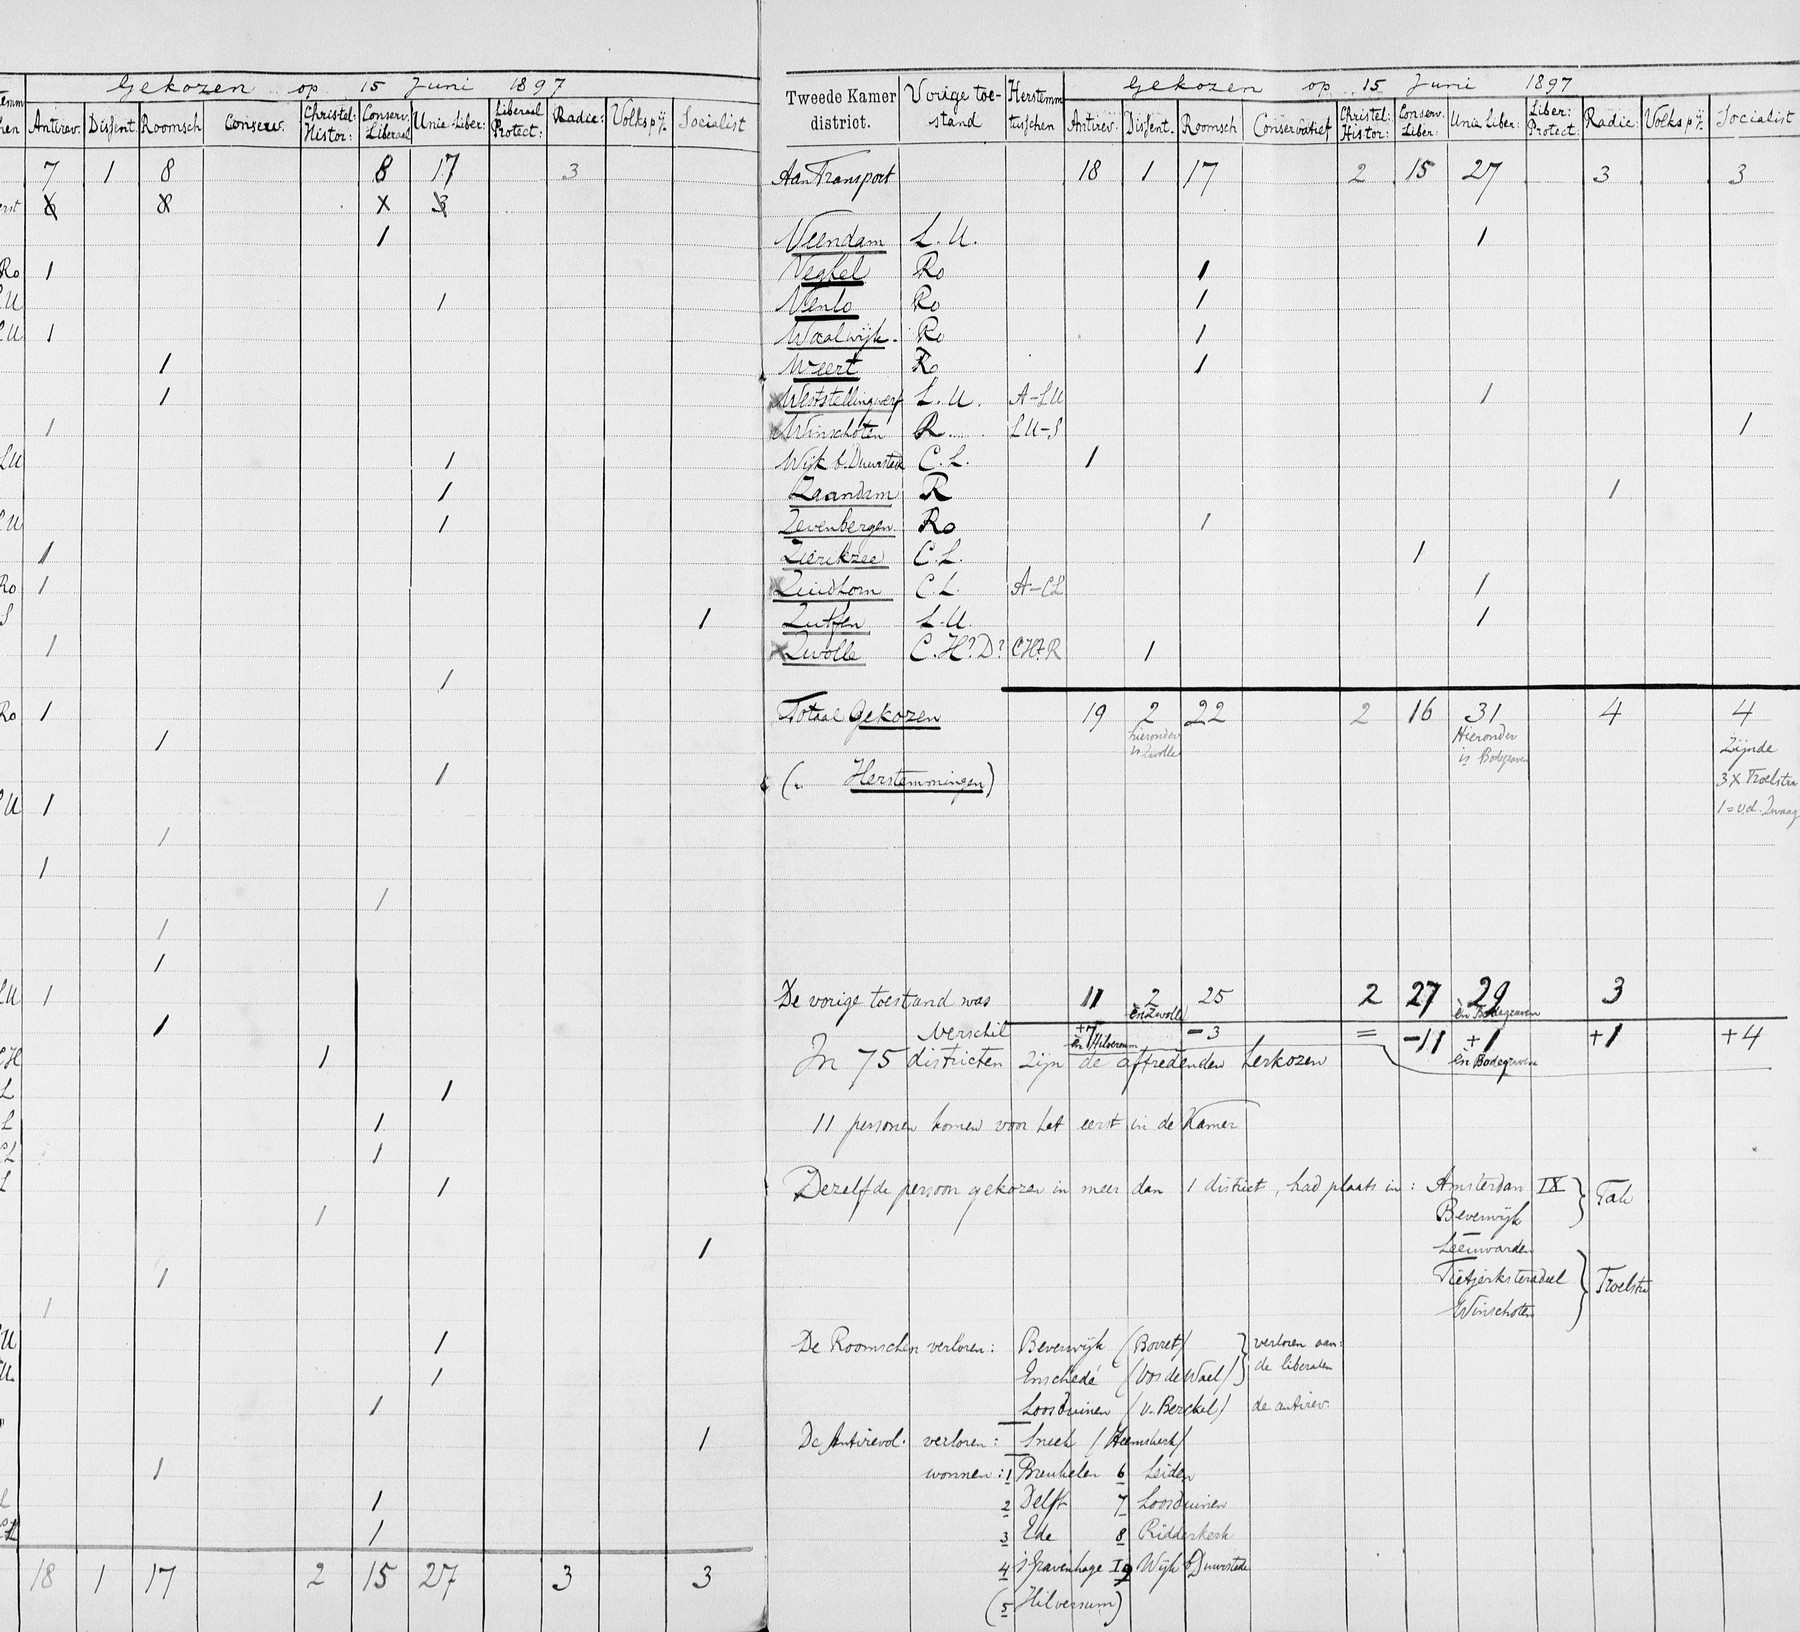 Gekozen op 15 Juni 1897
Antirev. Dissent. Roomsch Conserv. Christel: Histor: Conserv. Liberaal Unie Liber: Liberaal Protect: Radic: Volksp ij. Socialist
7 1 8 8 17 3
1
Ro 1
LU 1
LU 1
1
1
1
LU 1
1
LU 1
1
Ro 1
S 1
1
1
Ro 1
1
1
LU 1
1
1
1
1
1
LU 1
1
CH 1
L 1
L 1
CL 1
L 1
1
1
1
1
LU 1
U. 1
1
1
1
1
CH 1
18 1 17 2 15 27 3 3
Tweede Kamer district. Vorige toestand Herstemm tusschen Gekozen op 15 Juni 1897
Antirev. Dissent. Roomsch Conservatief Christel: Histor: Conserv. Liber. Unie Liber: Liber: Protect: Radic: Volksp ij. Socialist
Aan Transport 18 1 17 2 15 27 3 3
Veendam L. U. 1
Veghel Ro 1
Venlo Ro 1
Waalwijk Ro 1
Weert Ro 1
Weststellingwerf L. U. A-LU 1
Winschoten R. LU-S 1
Wijk b. Duurstede C. L. 1
Zaandam R 1
Zevenbergen Ro 1
Zierikzee C. L. 1
Zuidhorn C. L. A-CL 1
Zutfen L. U. 1
Zwolle C. H? D? CH+R 1
Totaal Gekozen 19 2 22 2 16 31 4 4
hieronder is Zwolle
Hieronder is Bodegraven
Zijnde
3 x Troelstra
1 = v.d. Zwaag
( „ Herstemmingen)
De vorige toestand was 11 2 25 2 27 29 3
en Zwolle
en Bodegraven
Verschil +7 -3 = -11 +1 +1 +4
en Hilversum
en Bodegraven
In 75 districten zijn de aftredenden herkozen
11 personen komen voor het eerst in de Kamer
Dezelfde persoon gekozen in meer dan 1 district, had plaats in: Amsterdam IX } Tak
Beverwijk
Leeuwarden
Tietjerksteradeel } Troelstra
Winschoten
De Roomschen verloren: Beverwijk (Borret) } verloren aan:
Enschedé (Vos de Wael) } de liberalen
Loosduinen (v. Berckel) de antirev.
De Antirevol. verloren: Sneek (Heemskerk)
wonnen: 1 Breukelen 6 Leiden
2 Delft 7 Loosduinen
3 Ede 8 Ridderkerk
4 's Gravenhage I 9 Wijk b Duurstede
(5 Hilversum)